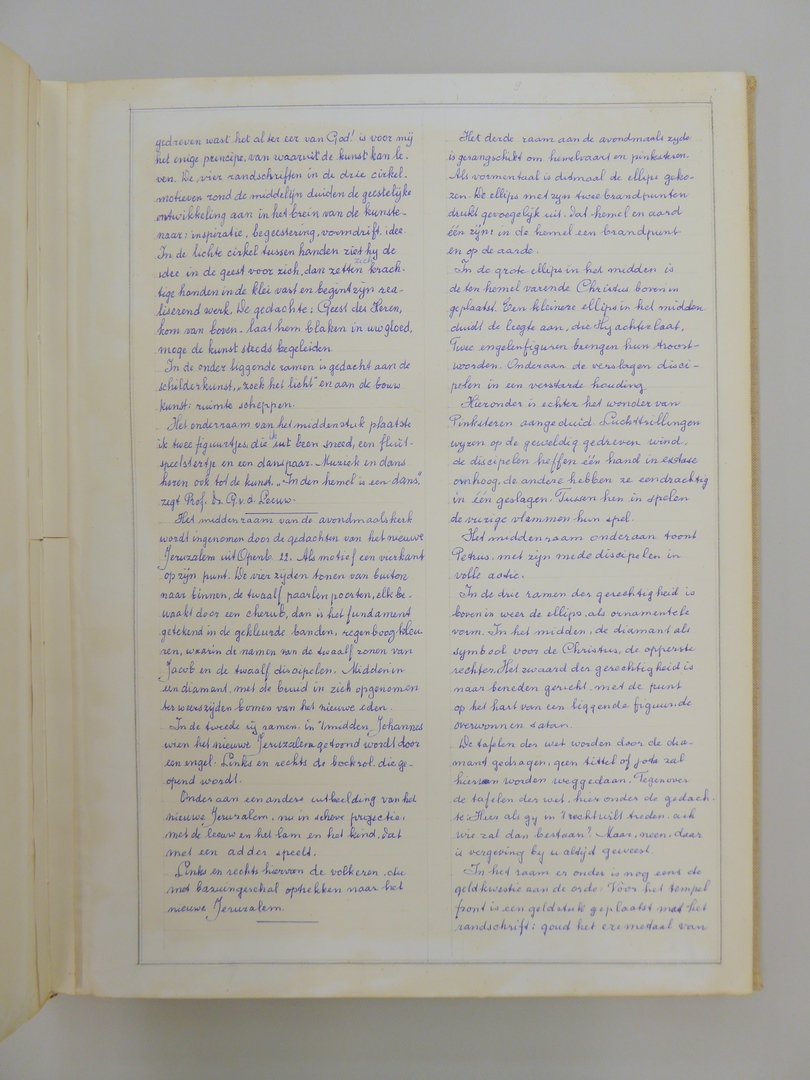 gedreven wast het al ter eer van God! is voor mij
het enige principe, van waaruit de kunst kan le-
ven. De vier randschriften in de drie cirkel-
motieven rond de middelijn duiden de geestelijke
ontwikkeling aan in het brein van de kunste-
naar: inspiratie, begeestering, vormdrift, idee.
In de lichte cirkel tussen handen ziet hij de
idee in de geest voor zich, dan zetten zich krach-
tige handen in de klei vast en begint zijn rea-
liserend werk. De gedachte: Geest des Heren,
kom van boven - laat hem blaken in uw gloed,
moge de kunst steeds begeleiden.
In de onder liggende ramen is gedacht aan de
schilderkunst, „zoek het licht" en aan de bouw
kunst: ruimte scheppen.
Het onderraam van het middenstuk plaatste
ik twee figuurtjes, die ik uit been sneed, een fluit-
speelstertje en een danspaar. Muziek en dans
horen ook tot de kunst. „In den hemel is een dans,"
zegt Prof. Dr. G. v. d. Leeuw.
Het middenraam van de avondmaalskerk
wordt ingenomen door de gedachten van het nieuwe
Jeruzalem uit Openb. 22. Als motief een vierkant
op zijn punt. De vier zijden tonen van buiten
naar binnen, de twaalf paarlen poorten, elk be-
waakt door een cherub, dan is het fundament
getekend in de gekleurde banden, regenboogkleu-
ren, waarin de namen van de twaalf zonen van
Jacob en de twaalf discipelen. Midden in
een diamant, met de bruid in zich opgenomen
ter weerszijden bomen van het nieuwe eden.
In de tweede rij ramen in 't midden, Johannes
wien het nieuwe Jeruzalem getoond wordt door
een engel. Links en rechts de boekrol, die ge-
opend wordt.
Onder aan een andere uitbeelding van het
nieuwe Jeruzalem, nu in scheve projectie,
met de leeuw en het lam en het kind, dat
met een adder speelt.
Links en rechts hiervan de volkeren, die
met bazuingeschal optrekken naar het
nieuwe Jeruzalem.
Het derde raam aan de avondmaals zyde
is gerangschikt om hemelvaart en pinksteren.
Als vormentaal is ditmaal de ellips geko-
zen. De ellips met zijn twee brandpunten
drukt gevoegelijk uit, dat hemel en aard
één zijn: in de hemel een brandpunt
en op de aarde.
In de grote ellips in het midden is
de ten hemel varende Christus boven in
geplaatst. Een kleinere ellips in het midden
duidt de leegte aan, die Hij achterlaat.
Twee engelenfiguren brengen hun troost-
woorden. Onderaan de verslagen disci-
pelen in een verstarde houding.
Hieronder is echter het wonder van
Pinksteren aangeduid. Luchttrillingen
wijzen op de geweldig gedreven wind,
de discipelen heffen één hand in extase
omhoog, de andere hebben ze eendrachtig
in één geslagen. Tussen hen in spelen
de vurige vlammen hun spel.
Het middenraam onderaan toont
Petrus, met zijn mede discipelen in
volle actie.
In de drie ramen der gerechtigheid is
boven in weer de ellips als ornamentele
vorm. In het midden, de diamant als
symbool voor de Christus, de opperste
rechter. Het zwaard der gerechtigheid is
naar beneden gericht, met de punt
op het hart van een liggende figuur, de
overwonnen satan.
De tafelen der wet worden door de dia-
mant gedragen, geen tittel of jota zal
hiervan worden weggedaan. Tegenover
de tafelen der wet, hier onder de gedach-
te: Heer als gy in 't recht wilt treden, ach
wie zal dan bestaan? Maar, neen, daar
is vergeving by u altyd geweest.
In het raam er onder is nog eens de
geldkwestie aan de orde. Vóór het tempel
front is een geldstuk geplaatst met het
randschrift: goud het eremetaal van